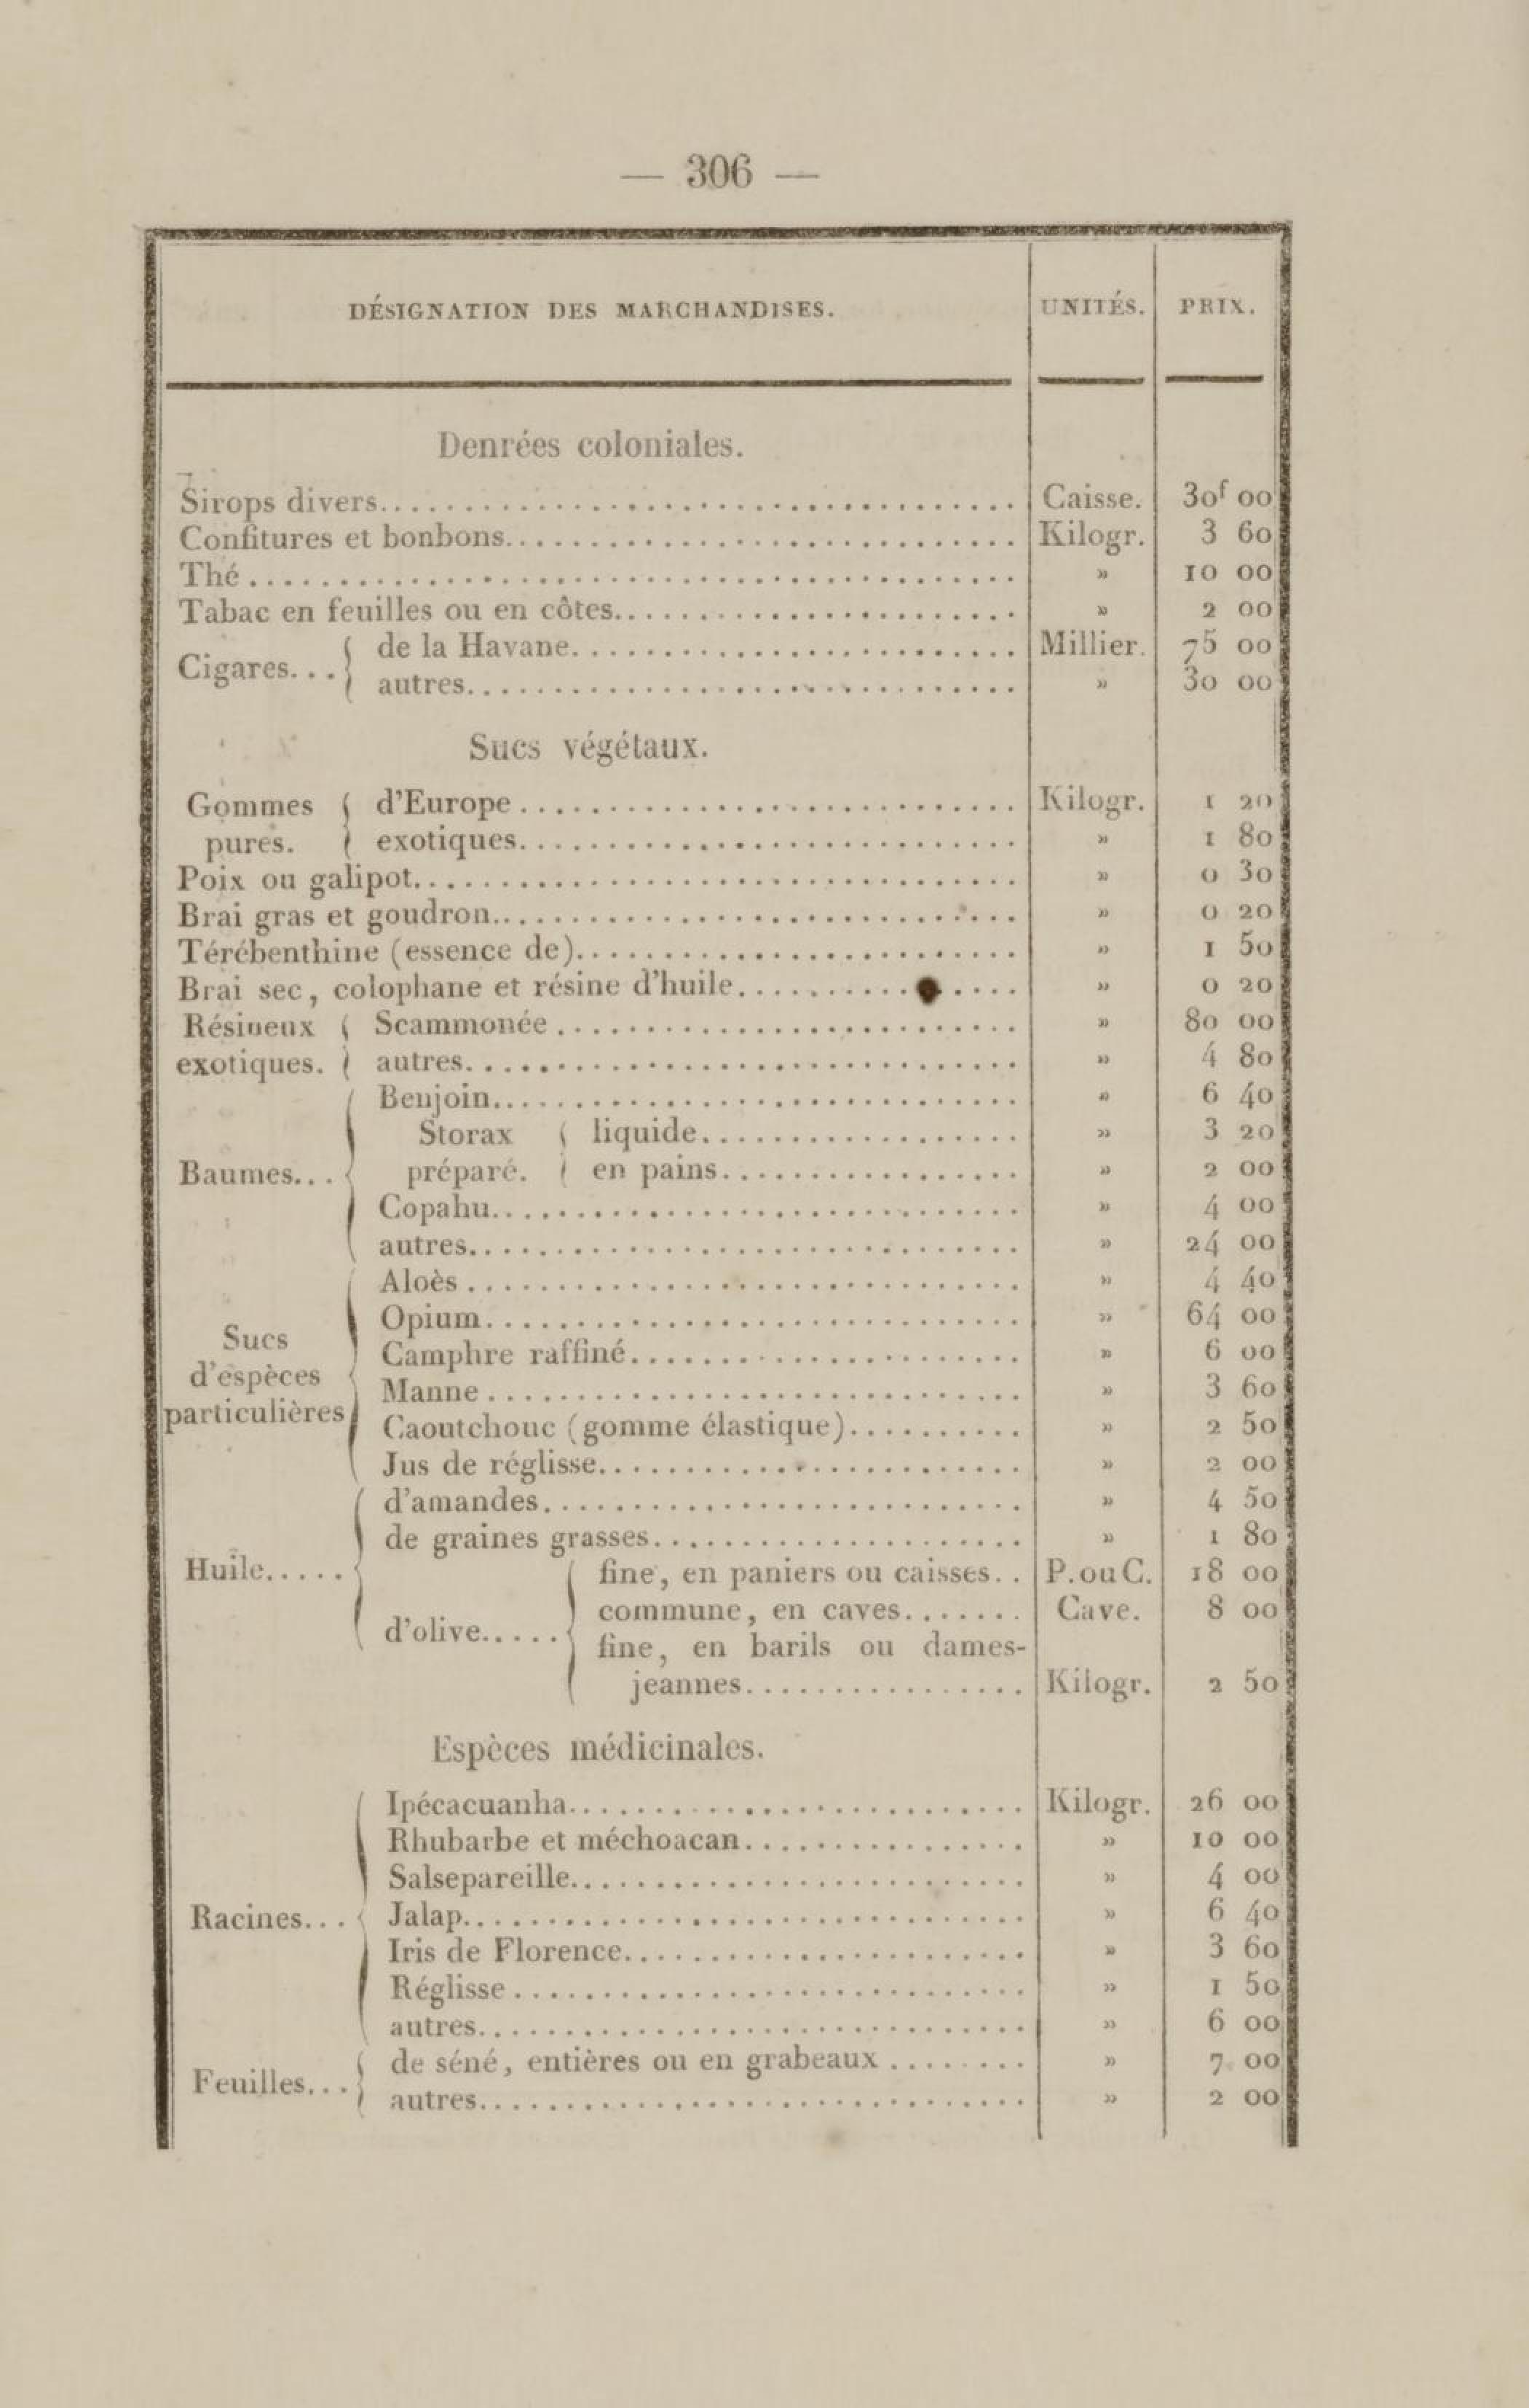 — 306 —
DÉSIGNATION DES MARCHANDISES. UNITÉS. PRIX.
Denrées coloniales.
Sirops divers........ Caisse. 30f 00
Confitures et bonbons........ Kilogr. 3 60
Thé........ » 10 00
Tabac en feuilles ou en côtes........ » 2 00
Cigares... { de la Havane........ Millier. 75 00
autres........ » 30 00
Sucs végétaux.
Gommes { d'Europe........ Kilogr. 1 20
pures. exotiques........ » 1 80
Poix ou galipot........ » 0 30
Brai gras et goudron........ » 0 20
Térébenthine (essence de)........ » 1 50
Brai sec, colophane et résine d'huile........ » 0 20
Résineux { Scammonée........ » 80 00
exotiques. autres........ » 4 80
Benjoin........ » 6 40
Storax { liquide........ » 3 20
Baumes... { préparé. en pains........ » 2 00
Copahu........ » 4 00
autres........ » 24 00
Aloès........ » 4 40
Opium........ » 64 00
Sucs
Camphre raffiné........ » 6 00
d'espèces
Manne........ » 3 60
particulières
Caoutchouc (gomme élastique)........ » 2 50
Jus de réglisse........ » 2 00
d'amandes........ » 4 50
de graines grasses........ » 1 80
Huile..... { fine, en paniers ou caisses.. P. ou C. 18 00
commune, en caves....... Cave. 8 00
d'olive..... { fine, en barils ou dames-
jeannes........ Kilogr. 2 50
Espèces médicinales.
Ipécacuanha........ Kilogr. 26 00
Rhubarbe et méchoacan........ » 10 00
Salsepareille........ » 4 00
Racines... { Jalap........ » 6 40
Iris de Florence........ » 3 60
Réglisse........ » 1 50
autres........ » 6 00
Feuilles... { de séné, entières ou en grabeaux........ » 7 00
autres........ » 2 00